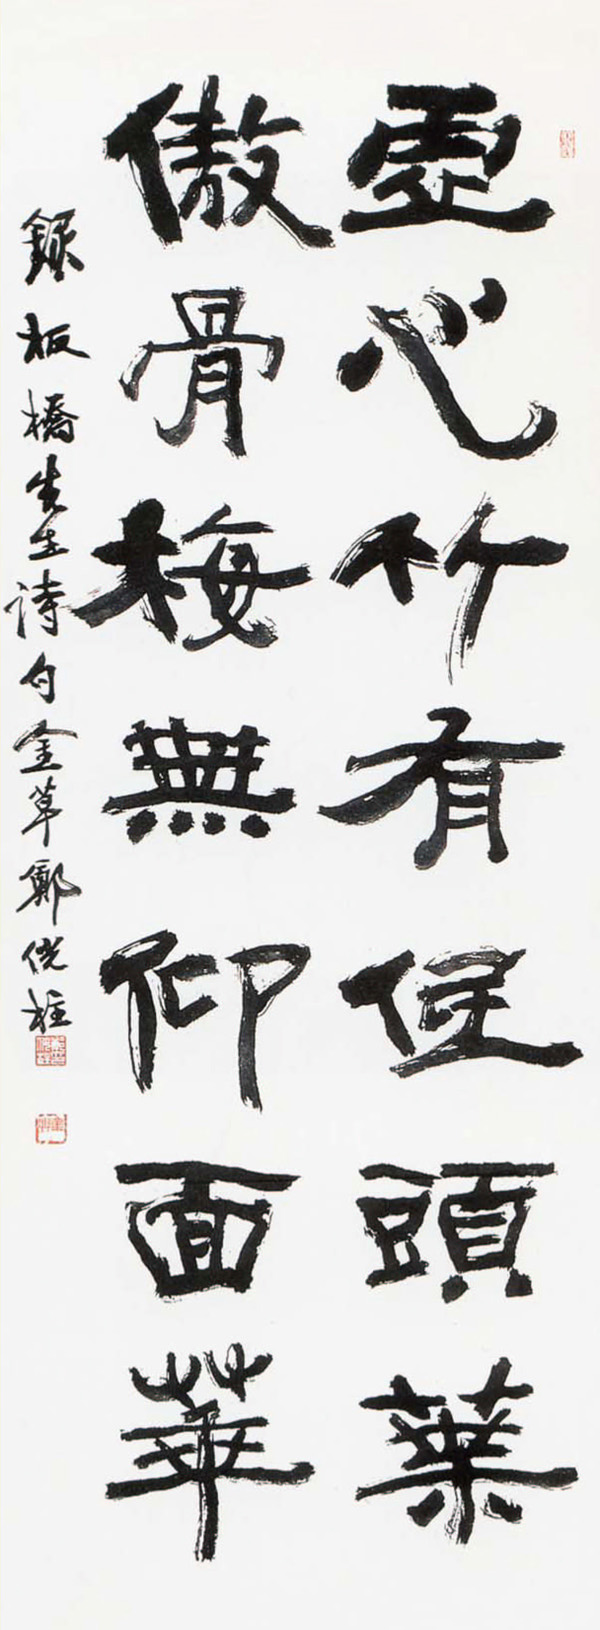 虚心竹有低頭葉
傲骨梅無仰面華
録板橋先生詩句金草鄭